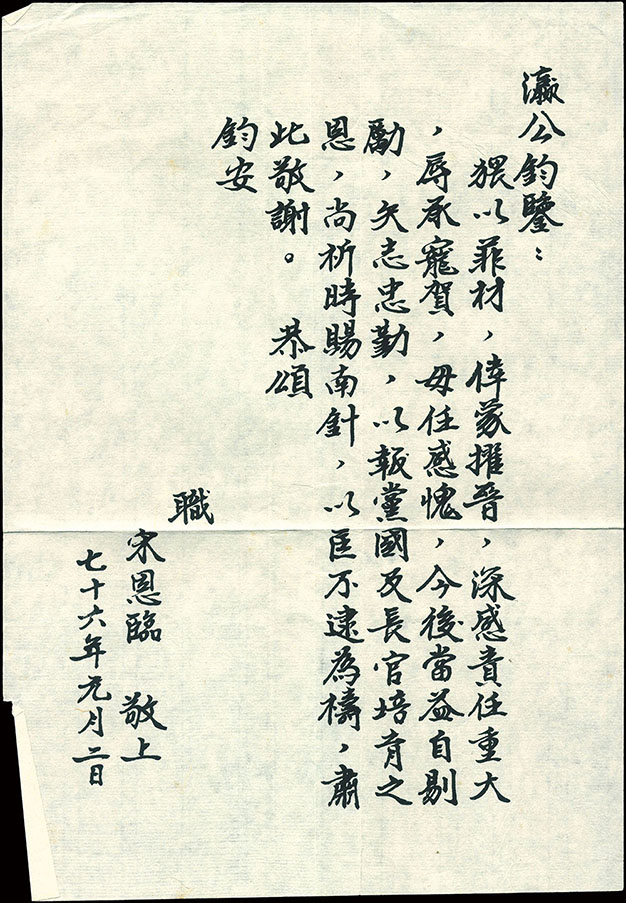 瀛公鈞鑒：
猥以菲材，倖蒙擢晉，深感責任重大
，辱承寵賀，毋任感愧，今後當益自剔
勵，矢志忠勤，以報黨國及長官培育之
恩，尚祈時賜南針，以匡不逮為禱，肅
此敬謝。　恭頌
鈞安
職
宋恩臨　敬上
七十六年元月二日